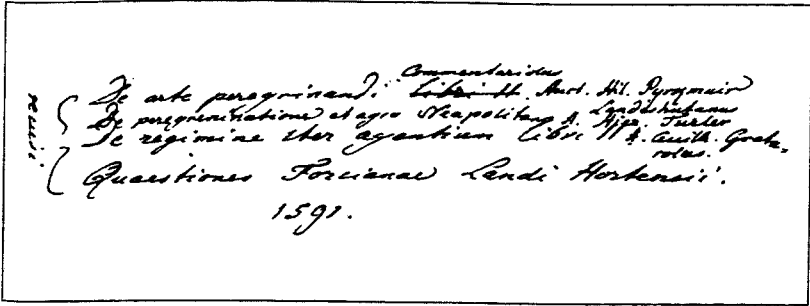 Commentariolus
De arte peregrinandi Libri II. Auct. Hil.
Landeshutanus
De peregrinatione et agro Neapolitano A. Hjer. Turler
De regimine iter agentium Libri II A. Guilh. Grata-
rolus.
Quaestiones Forcianae Landi Hortensii.
1591.